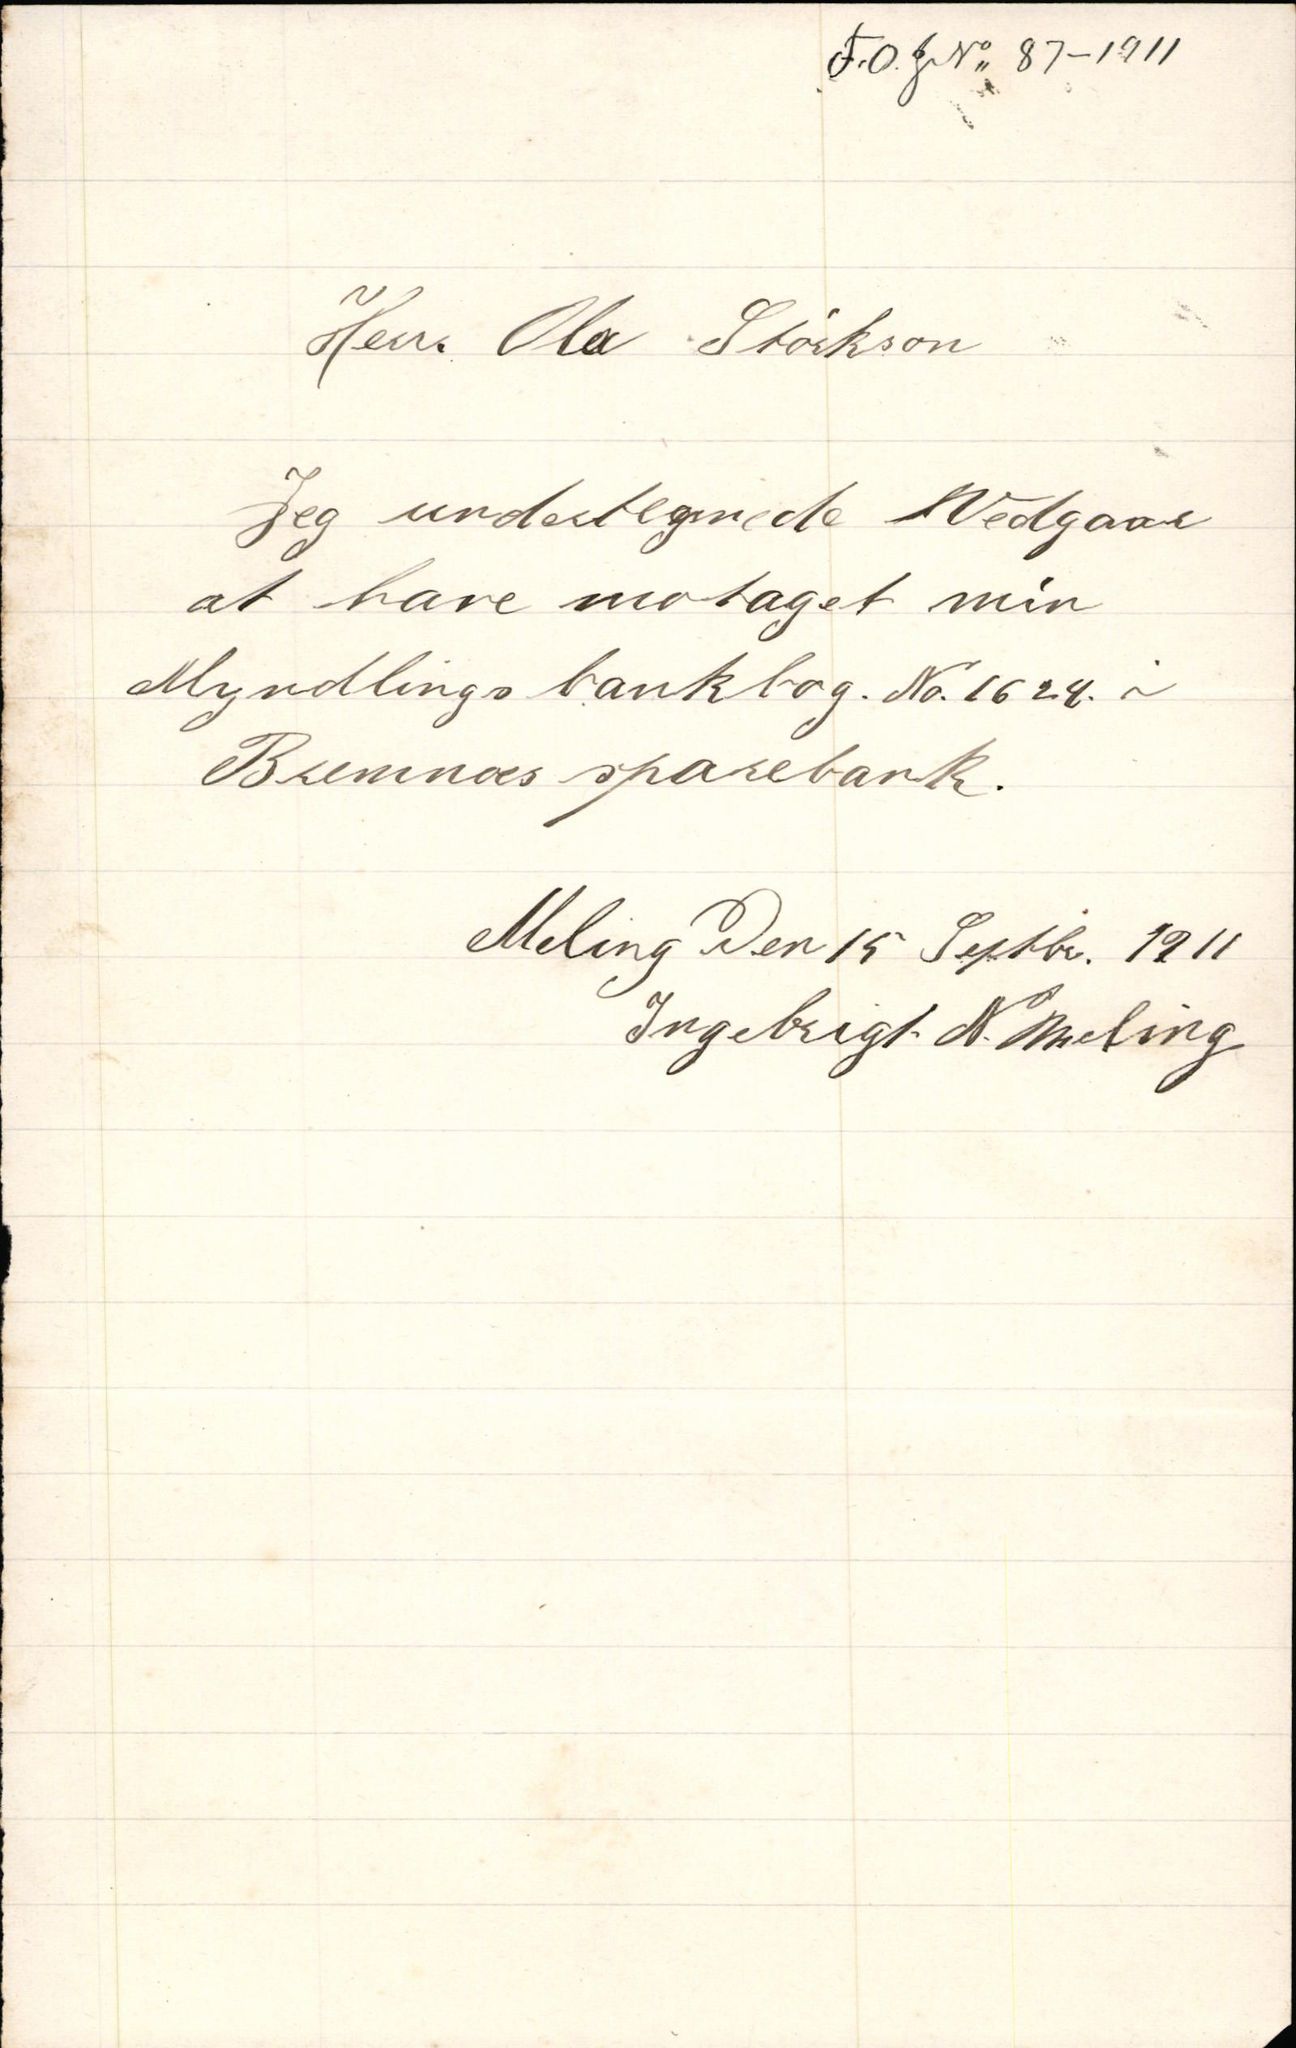 F.O.J No 87-1911
Herr. Ola Störkson
Jeg undertegnede Vedgaar
at have motaget min
Myndlings bankbog. No. 1624. i
Bremnæs sparebank.
Meling Den 15 Septbr. 1911
Ingebrigt N. Meling